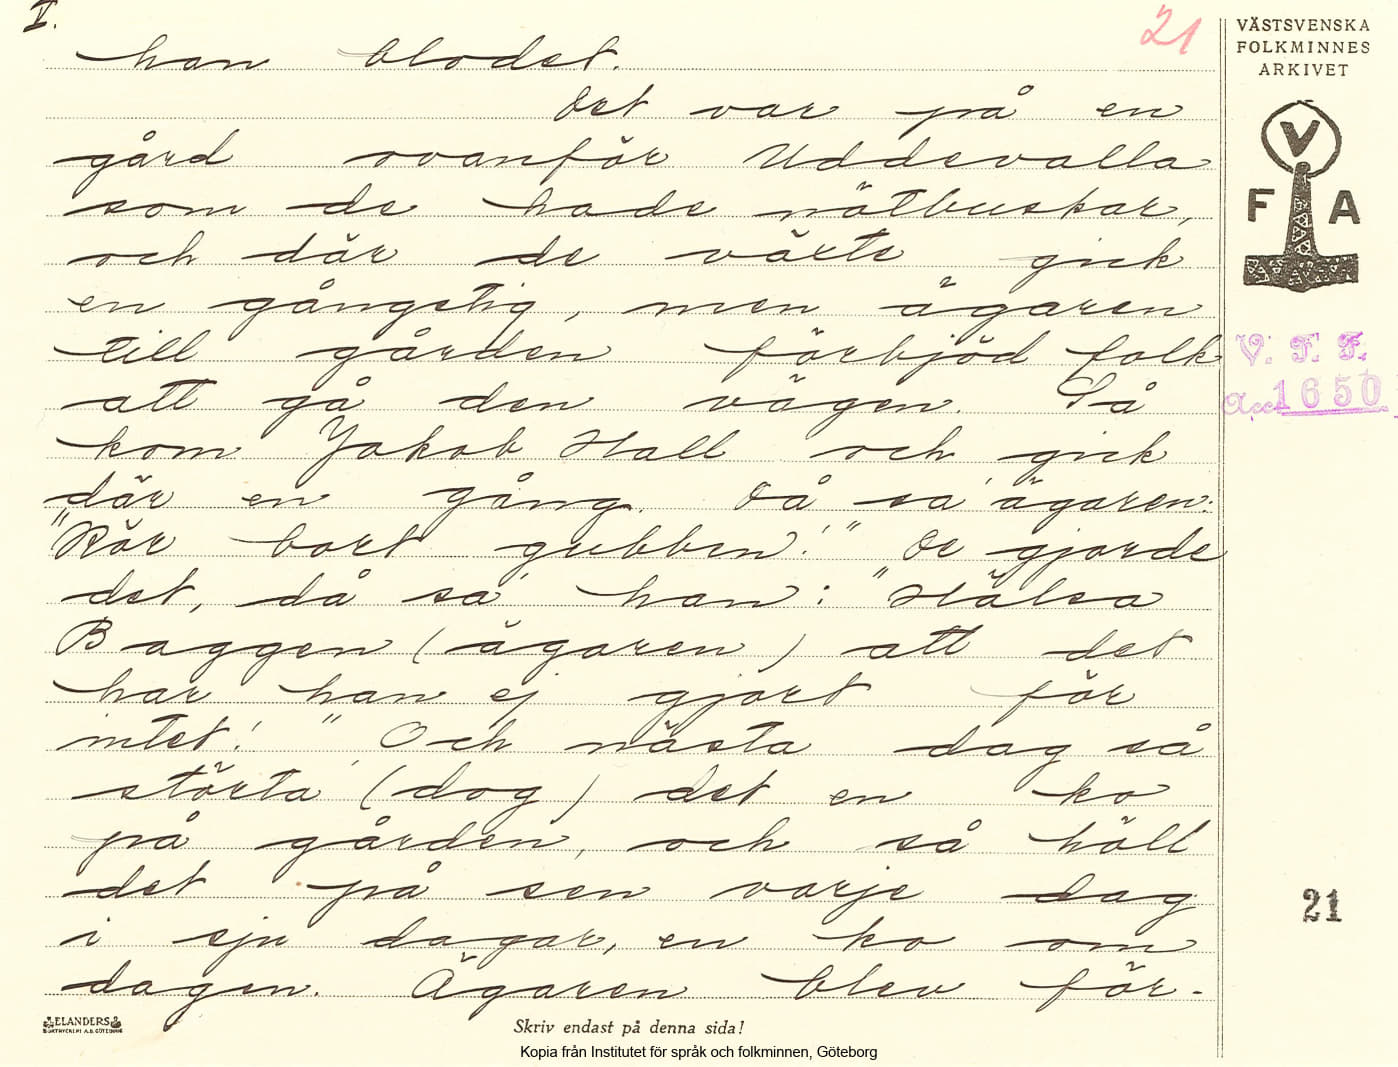 V.
21
VÄSTSVENSKA
FOLKMINNES
ARKIVET
V
F A
V. F. F.
Acc. 1650
21
han blodet.
Det var på en
gård ovanför Uddevalla
som de hade nötbuskar,
och där de växte gick
en gångstig, men ägaren
till gården förbjöd folk
att gå den vägen. Så
kom Jakob Hall och gick
där en gång. Då sa' ägaren:
"Kör bort gubben!" De gjorde
det, då sa' han: "Hälsa
Baggen (ägaren) att det
har han ej gjort för
intet!" Och nästa dag så
störta' (dog) det en ko
på gården, och så höll
det på sen varje dag
i sju dagar, en ko om
dagen. Ägaren blev för-
ELANDERS
BOKTRYCKERI A.B. GÖTEBORG
Skriv endast på denna sida!
Kopia från Institutet för språk och folkminnen, Göteborg